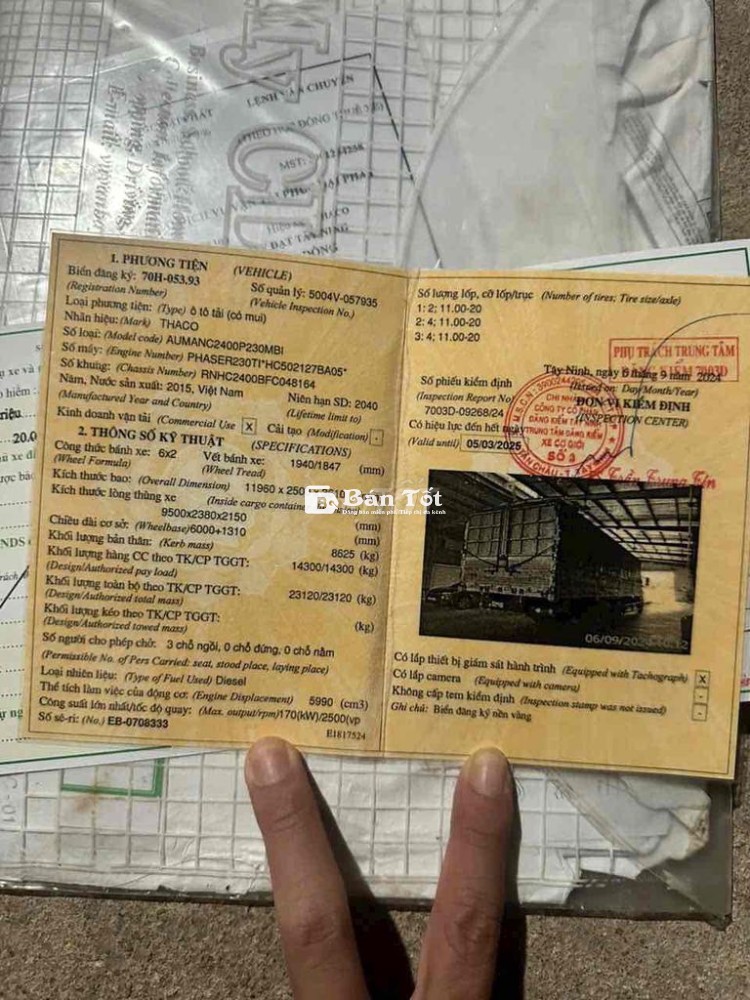 My CD
LỆNH VẬN CHUYỂN
MST:
1. PHƯƠNG TIỆN (VEHICLE)
Biển đăng ký: 70H-053.93 Số quản lý: 5004V-057935
(Registration Number) (Vehicle Inspection No.)
Loại phương tiện: (Type) ô tô tải (có mui)
Nhãn hiệu: (Mark) THACO
Số loại: (Model code) AUMANC2400P230MBI
Số máy: (Engine Number) PHASER230TI*HC502127BA05*
Số khung: (Chassis Number) RNHC2400BFC048164
Năm, Nước sản xuất: 2015, Việt Nam Niên hạn SD: 2040
(Manufactured Year and Country) (Lifetime limit to)
Kinh doanh vận tải (Commercial Use) X Cải tạo (Modification) -
2. THÔNG SỐ KỸ THUẬT (SPECIFICATIONS)
Công thức bánh xe: 6x2 Vết bánh xe: 1940/1847 (mm)
(Wheel Formula) (Wheel Tread)
Kích thước bao: (Overall Dimension) 11960 x 250
Kích thước lòng thùng xe (Inside cargo container
9500x2380x2150 (mm)
Chiều dài cơ sở: (Wheelbase) 6000+1310 (mm)
Khối lượng bản thân: (Kerb mass) 8625 (kg)
Khối lượng hàng CC theo TK/CP TGGT: 14300/14300 (kg)
(Design/Authorized pay load)
Khối lượng toàn bộ theo TK/CP TGGT: 23120/23120 (kg)
(Design/Authorized total mass)
Khối lượng kéo theo TK/CP TGGT: (kg)
(Design/Authorized towed mass)
Số người cho phép chở: 3 chỗ ngồi, 0 chỗ đứng, 0 chỗ nằm
(Permissible No. of Pers Carried: seat, stood place, laying place)
Loại nhiên liệu: (Type of Fuel Used) Diesel
Thể tích làm việc của động cơ: (Engine Displacement) 5990 (cm3)
Công suất lớn nhất/tốc độ quay: (Max. output/rpm) 170(kW)/2500(vp
Số sê-ri: (No.) EB-0708333 E1817524
Số lượng lốp, cỡ lốp/trục (Number of tires; Tire size/axle)
1: 2; 11.00-20
2: 4; 11.00-20
3: 4; 11.00-20
PHỤ TRÁCH TRUNG TÂM
Tây Ninh, ngày 6 tháng 9 năm 2024
Số phiếu kiểm định (Issued on: Day/Month/Year)
(Inspection Report No) ĐƠN VỊ KIỂM ĐỊNH
7003D-09268/24 (INSPECTION CENTER)
Có hiệu lực đến hết ngày
(Valid until) 05/03/2025
CHI NHÁNH
CÔNG TY CỔ PHẦN
ĐĂNG KIỂM
TRUNG TÂM ĐĂNG KIỂM
XE CƠ GIỚI
SỐ 3
Bán Tốt
06/09/202
Có lắp thiết bị giám sát hành trình (Equipped with Tachograph) X
Có lắp camera (Equipped with camera) -
Không cấp tem kiểm định (Inspection stamp was not issued) -
Ghi chú: Biển đăng ký nền vàng